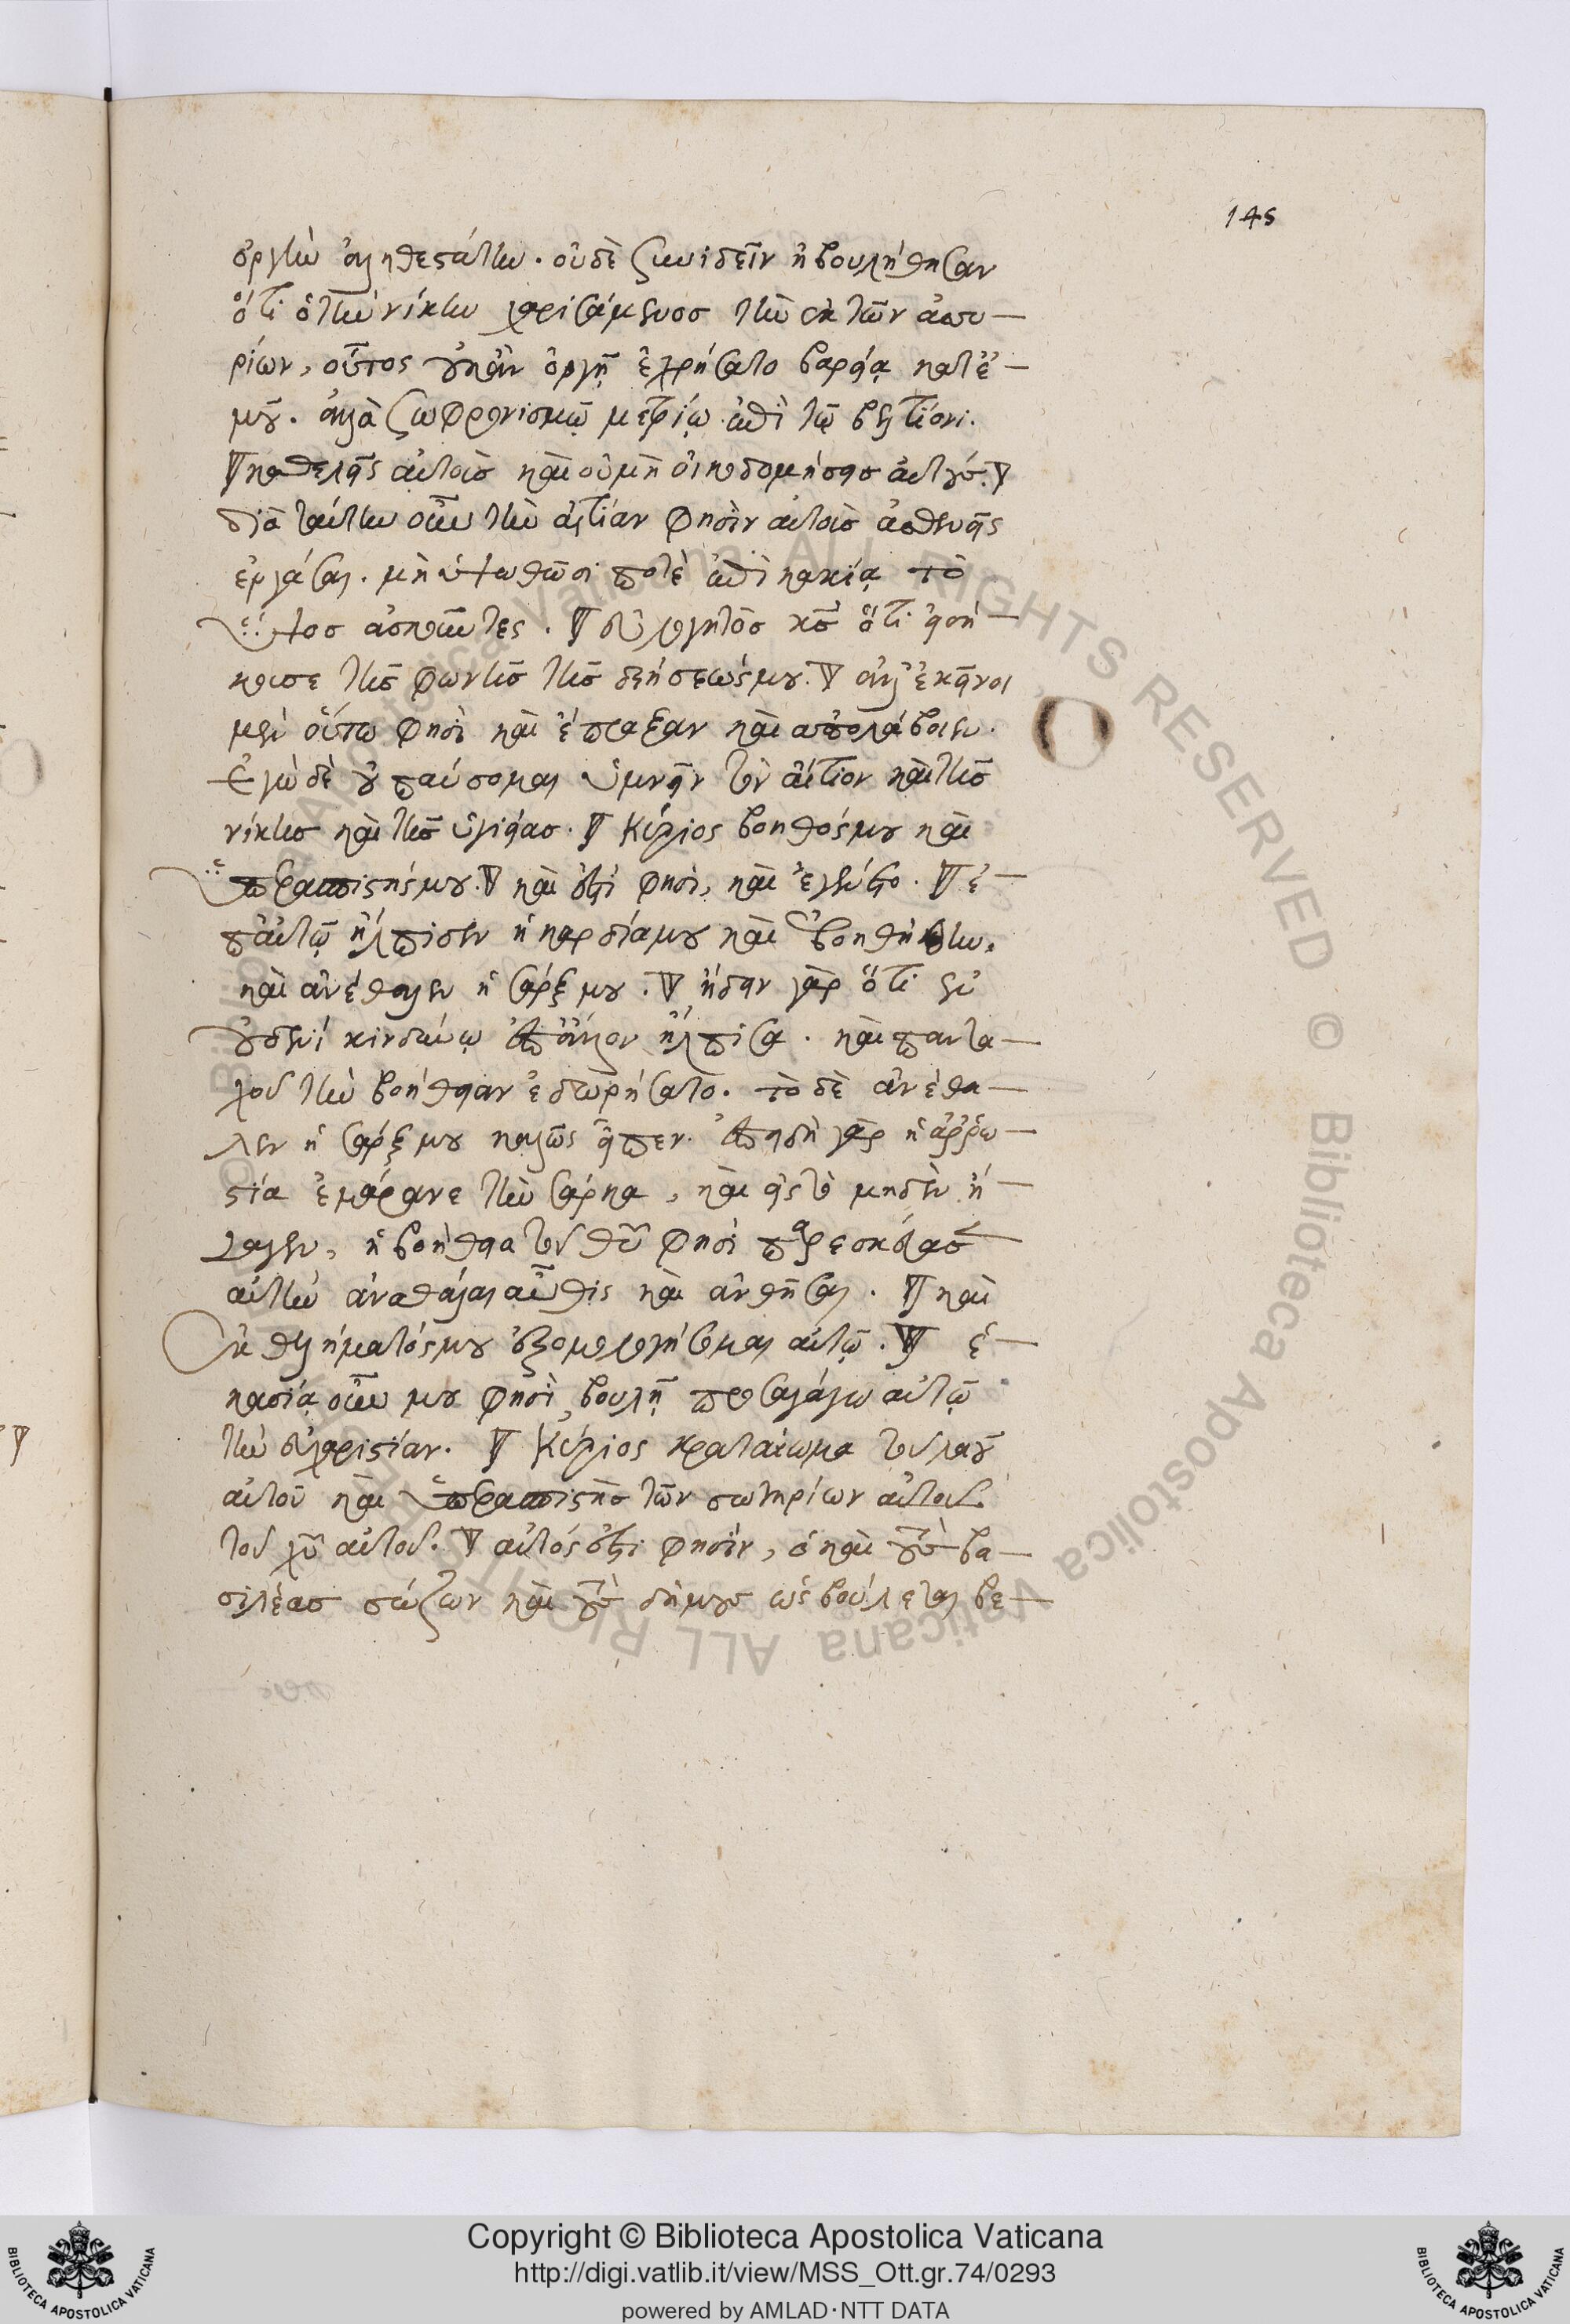 145
ὀργὴν ἀληθεστάτην. οὐδὲ συνιδεῖν ἠβουλήθησαν
ὅτι ὁ τὴν νίκην χαρισάμενος τὴν ἐκ τῶν ἀσσυ-
ρίων, οὗτος οὐκ ἂν ὀργῇ ἐχρήσατο βαρείᾳ κατ' ἐ-
μοῦ. ἀλλὰ σωφρονισμῷ μετρίῳ ἐπὶ τῷ βελτίονι.
καθελεῖς αὐτοὺς καὶ οὐ μὴ οἰκοδομήσεις αὐτούς.
διὰ ταύτην οὖν τὴν αἰτίαν φησὶν αὐτοὺς ἀσθενεῖς
ἐργάσαι. μὴ ὑψωθῶσι ποτὲ ἐπὶ κακίᾳ τὸ
ὕψος ἀσκοῦντες. εὐλογητὸς κς ὅτι εἰσή-
κουσε τῆς φωνῆς τῆς δεήσεώς μου. ἀλλ' ἐκεῖνοι
μὲν οὕτω φησὶ καὶ ἔπραξαν καὶ ἀπολάβοιεν.
Ἐγὼ δὲ οὐ παύσομαι ὑμνεῖν τὸν αἴτιον καὶ τῆς
νίκης καὶ τῆς ὑγιείας. Κύριος βοηθός μου καὶ
ὑπερασπιστής μου. καὶ ἔστι φησὶ, καὶ ἐγένετο. ἐ-
π' αὐτῷ ἤλπισεν ἡ καρδία μου καὶ ἐβοηθήθην.
καὶ ἀνέθαλεν ἡ σάρξ μου. ᾔδειν γὰρ ὅτι ἐν
οὐδενὶ κινδύνῳ ἐπ' ἄλλον ἤλπισα. καὶ παντα-
χοῦ τὴν βοήθειαν ἐδωρήσατο. τὸ δὲ ἀνέθα-
λεν ἡ σάρξ μου καλῶς εἶπεν. ἐπειδὴ γὰρ ἡ ἀῤῥω-
στία ἐμάρανε τὴν σάρκα, καὶ εἰς τὸ μηδὲν ἤ-
λασεν, ἡ βοήθεια τοῦ θυ φησὶ παρεσκεύασ
αὐτὴν ἀναθάλαι αὖθις καὶ ἀνθῆσαι. καὶ
ἐκ θελήματός μου ἐξομολογήσομαι αὐτῷ. ἑ-
κουσίᾳ οὖν μου φησὶ, βουλῇ προσαγάγω αὐτῷ
τὴν εὐχαριστίαν. Κύριος κραταίωμα τοῦ λαοῦ
αὐτοῦ καὶ ὑπερασπιστὴς τῶν σωτηρίων αὐτοῦ.
τοῦ χυ αὐτοῦ. αὐτός ἐστι φησὶν, ὁ καὶ τοὺς βα-
σιλέας σώζων καὶ τοὺς δήμους ὡς βούλεται βε-
Copyright © Biblioteca Apostolica Vaticana
http://digi.vatlib.it/view/MSS_Ott.gr.74/0293
powered by AMLAD·NTT DATA